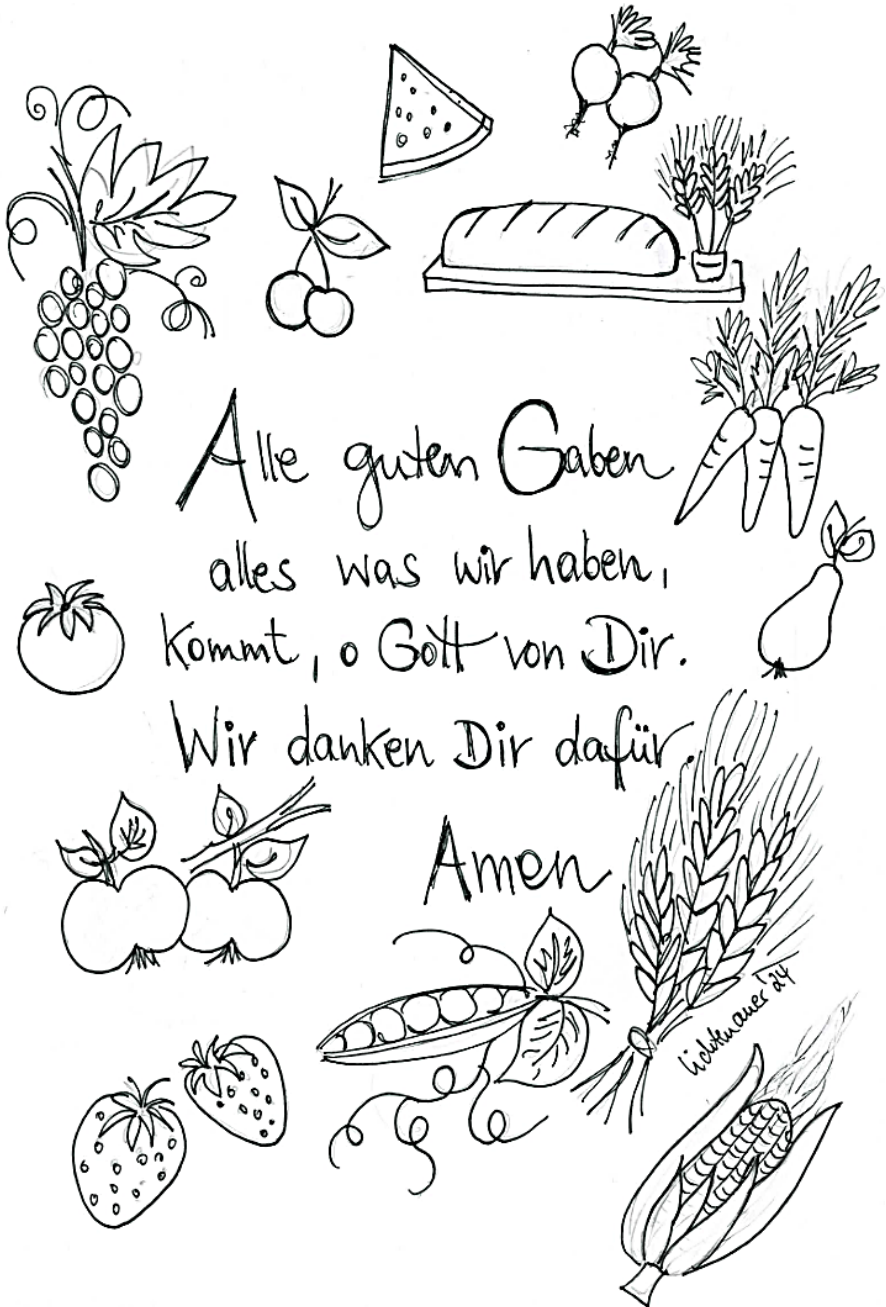 Alle guten Gaben
alles was wir haben,
kommt, o Gott von Dir.
Wir danken Dir dafür.
Amen
Lichtenauer '24